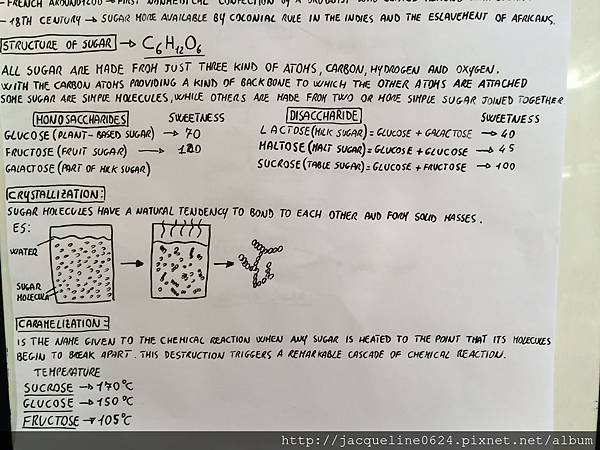 - 18TH CENTURY → SUGAR MORE AVAILABLE BY COLONIAL RULE IN THE INDIES AND THE ESLAVEMENT OF AFRICANS.
STRUCTURE OF SUGAR → C6H12O6
ALL SUGAR ARE MADE FROM JUST THREE KIND OF ATOMS, CARBON, HYDROGEN AND OXYGEN.
WITH THE CARBON ATOMS PROVIDING A KIND OF BACKBONE TO WHICH THE OTHER ATOMS ARE ATTACHED
SOME SUGAR ARE SIMPLE MOLECULES, WHILE OTHERS ARE MADE FROM TWO OR MORE SIMPLE SUGAR JOINED TOGETHER
MONOSACCHARIDES SWEETNESS
GLUCOSE (PLANT-BASED SUGAR) → 70
FRUCTOSE (FRUIT SUGAR) → 120
GALACTOSE (PART OF MILK SUGAR)
DISACCHARIDE SWEETNESS
LACTOSE (MILK SUGAR) = GLUCOSE + GALACTOSE → 40
MALTOSE (MALT SUGAR) = GLUCOSE + GLUCOSE → 45
SUCROSE (TABLE SUGAR) = GLUCOSE + FRUCTOSE → 100
CRYSTALLIZATION:
SUGAR MOLECULES HAVE A NATURAL TENDENCY TO BOND TO EACH OTHER AND FORM SOLID MASSES.
ES:
WATER
SUGAR
MOLECULA
CARAMELIZATION:
IS THE NAME GIVEN TO THE CHEMICAL REACTION WHEN ANY SUGAR IS HEATED TO THE POINT THAT ITS MOLECULES
BEGIN TO BREAK APART. THIS DESTRUCTION TRIGGERS A REMARKABLE CASCADE OF CHEMICAL REACTION.
TEMPERATURE
SUCROSE → 170°C
GLUCOSE → 150°C
FRUCTOSE → 105°C
http://jacqueline0624.pixnet.net/album